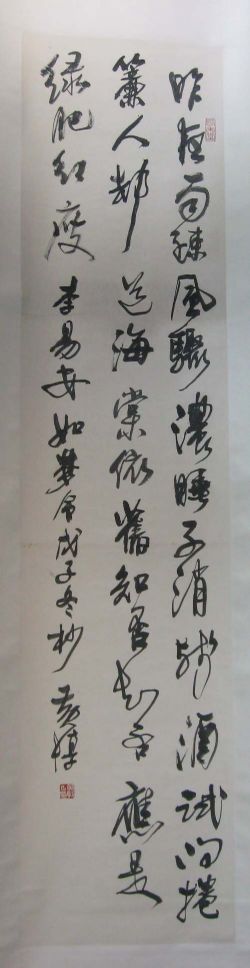 昨夜雨疎風驟濃睡不消殘酒試問捲
簾人卻道海棠依舊知否知否應是
綠肥紅瘦 李易安如夢令戊子冬杪 黃惇